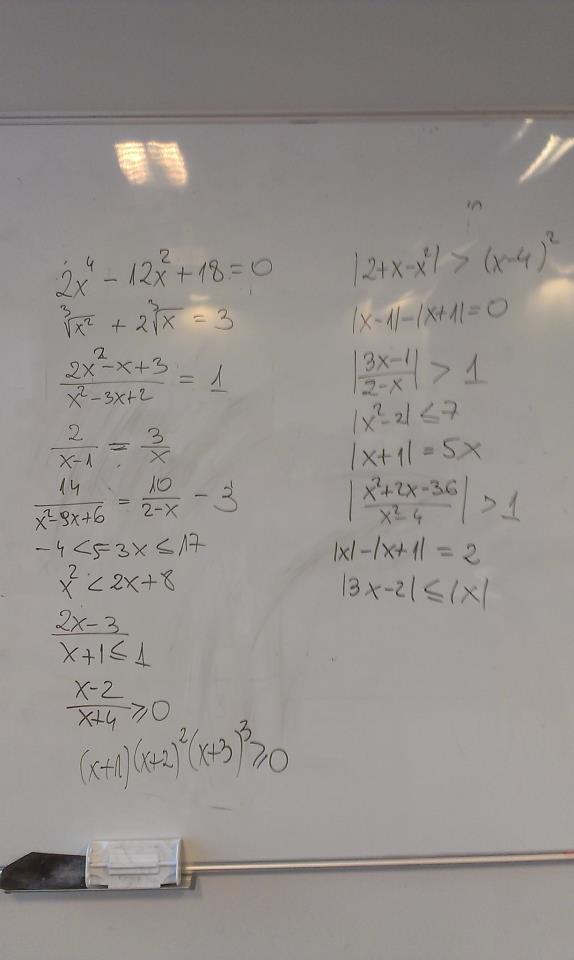 2x⁴ − 12x² + 18 = 0
∛x² + 2∛x = 3
(2x² − x + 3)/(x² − 3x + 2) = 1
2/(x − 1) = 3/x
14/(x² − 9x + 6) = 10/(2 − x) − 3
−4 < 5 − 3x ≤ 17
x² < 2x + 8
(2x − 3)/(x + 1) ≤ 1
(x − 2)/(x + 4) ≥ 0
(x + 1)(x + 2)²(x + 3)³ ≥ 0
|2 + x − x²| > (x − 4)²
|x − 1| − |x + 1| = 0
|(3x − 1)/(2 − x)| > 1
|x² − 2| ≤ 7
|x + 1| = 5x
|(x² + 2x − 36)/(x² − 4)| > 1
|x| − |x + 1| = 2
|3x − 2| ≤ |x|